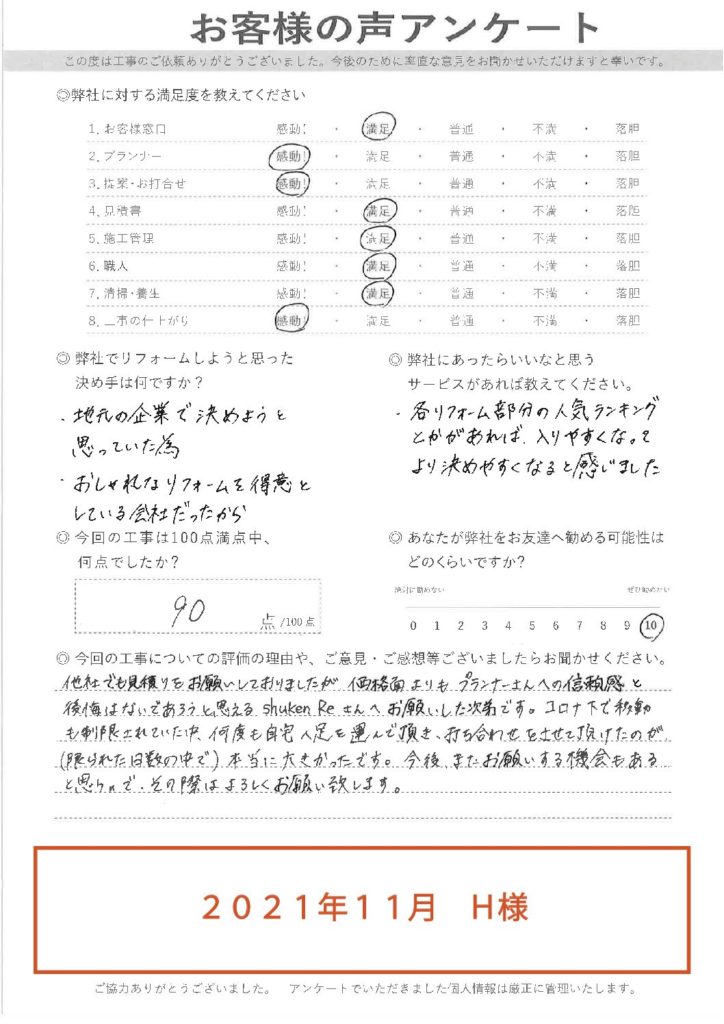 お客様の声アンケート
この度は工事のご依頼ありがとうございました。今後のために率直な意見をお聞かせいただけますと幸いです。
◎弊社に対する満足度を教えてください
1. お客様窓口 感動! ・ 満足 ・ 普通 ・ 不満 ・ 落胆
2. プランナー 感動! ・ 満足 ・ 普通 ・ 不満 ・ 落胆
3. 提案・お打合せ 感動! ・ 満足 ・ 普通 ・ 不満 ・ 落胆
4. 見積書 感動! ・ 満足 ・ 普通 ・ 不満 ・ 落胆
5. 施工管理 感動! ・ 満足 ・ 普通 ・ 不満 ・ 落胆
6. 職人 感動! ・ 満足 ・ 普通 ・ 不満 ・ 落胆
7. 清掃・養生 感動! ・ 満足 ・ 普通 ・ 不満 ・ 落胆
8. 工事の仕上がり 感動! ・ 満足 ・ 普通 ・ 不満 ・ 落胆
◎ 弊社でリフォームしようと思った
決め手は何ですか？
・地元の企業で決めようと
思っていた為
・おしゃれなリフォームを得意と
している会社だったから
◎ 弊社にあったらいいなと思う
サービスがあれば教えてください。
・各リフォーム部分の人気ランキング
とかがあれば、入りやすくなって
より決めやすくなると感じました
◎ 今回の工事は100点満点中、
何点でしたか？
90 点 /100点
◎ あなたが弊社をお友達へ勧める可能性は
どのくらいですか？
絶対に勧めない ぜひ勧めたい
0 1 2 3 4 5 6 7 8 9 10
◎ 今回の工事についての評価の理由や、ご意見・ご感想等ございましたらお聞かせください。
他社でも見積りをお願いしておりましたが、価格面よりもプランナーさんへの信頼感と
後悔はないであろうと思えるshuken Reさんへお願いした次第です。コロナ下で移動
も制限されていた中、何度も自宅へ足を運んで頂き、打ち合わせをさせて頂けたのが
(限られた日数の中で)本当に大きかったです。今後、またお願いする機会もある
と思うので、その際はよろしくお願い致します。
2021年11月 H様
ご協力ありがとうございました。 アンケートでいただきました個人情報は厳正に管理いたします。